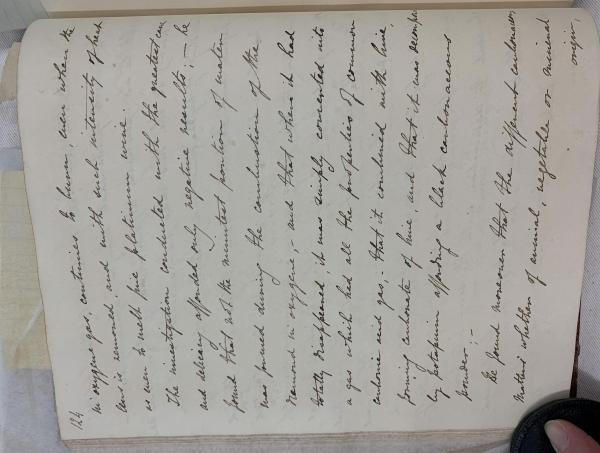 124
in oxygene gas, continues to burn, even when the
lens is removed, and with such intensity of heat
as even to melt fine platinum wire.
The investigation conducted with the greatest care
and delicacy afforded only negative results; — he
found that not the minutest portion of water
was formed during the combustion of the
diamond in oxygene, — and that when it had
totally disappeared, it was simply converted into
a gas which had all the properties of common
carbonic acid gas, — that it combined with lime,
forming carbonate of lime, and that it was decompo
by potassium affording a black carbonaceous
powder; —
He found moreover that the different carbonaceous
matters whether of animal, vegetable or mineral
origin,